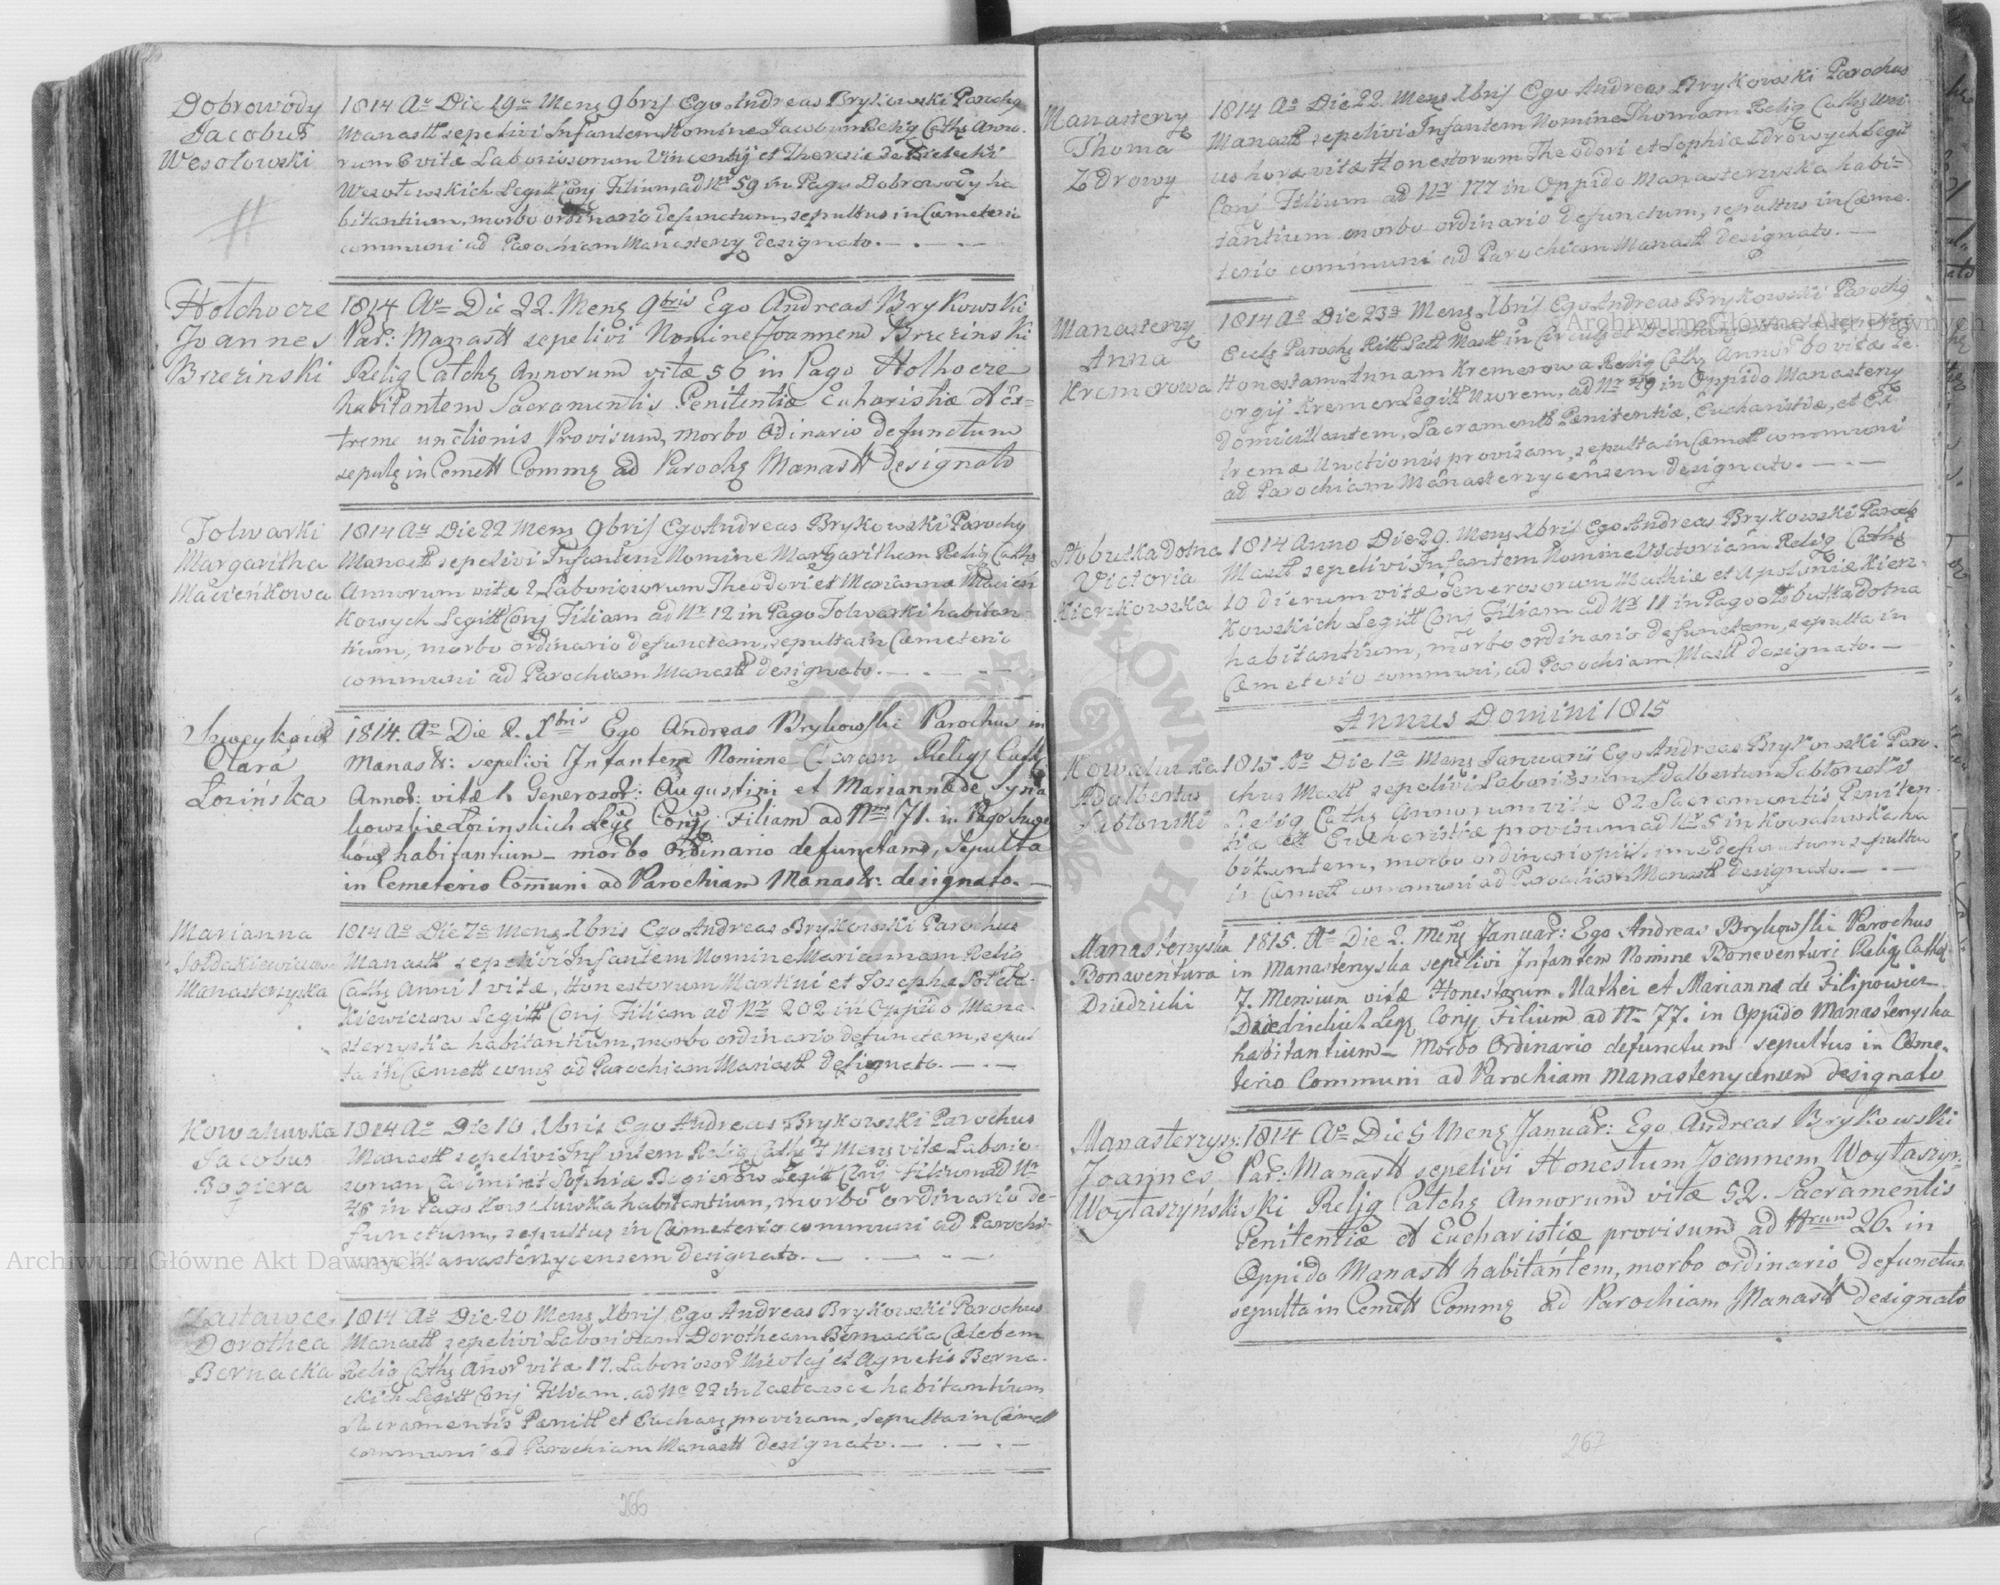 Dobrowody
Jacobus
Wesołowski
1814 Ao Die 19a Mens 9bris Ego Andreas Brykowski Parochs
Manastt sepelivi Infantem Nomine Jacobum Relig Caths Anno-
rum 6 vitæ Laboriosorum Vincentij et Theresiæ de Bielecki
Wesołowskich Legitt Conj Filium, ad Nr 59 in Pago Dobrowody ha
bitantium, morbo ordinario defunctum, sepultus in Cæmeterio
communi ad Parochiam Manasterz designato.
Hołchocze
Joannes
Brzezinski
1814 Ao Die 22. Mens 9bris Ego Andreas Brykowski
Par: Manastt sepelivi Nomine Joannem Brzezinski
Relig Cathς Annorum vitæ 56 in Pago Holhocze
habitantem Sacramentis Penitentiæ Eucharistiæ et Ex-
treme unctionis Provisum, morbo Odinario defunctum
sepults in Cemett Comms ad Parochs Manastt designato
Folwarki
Margaritha
Macieńkowa
1814 Ao Die 22 Mens 9bris Ego Andreas Brykowski Parochs
Manastt sepelivi Infantem Nomine Margaritham Relig Caths
Annorum vitæ 2 Laboriosorum Theodori et Mariannæ Macień
kowych Legitt Conj Filiam ad Nr 12 in Pago Folwarki habitan-
tium, morbo ordinario defunctam, sepulta in Cæmeterio
communi ad Parochiam Manastt designato.
Clara
Łozińska
1814. Ao Die 2. Xbris Ego Andreas Brykowski Parochus in
Manast: sepelivi Infantem Nomine Claram Religs Cath
Annor: vitæ 1. Generosor: Augustini et Mariannæ de
Łozinskich Legs Conj: Filiam ad Nrm 71. in Pago
habitantium – morbo Ordinario defunctam, Sepulta
in Cemeterio Comuni ad Parochiam Manast: designato. –
Marianna
Sołdakiewiczow
Manasterzyska
1814 Ao Die 7a Mens Xbris Ego Andreas Brykowski Parochus
Manastt sepelivi Infantem Nomine Mariannam Relig
Caths Anni 1 vitæ, Honestorum Martini et Josephæ Sołda-
kiewiczow Legitt Conj Filiam ad Nr 202 in Oppido Mana-
sterzyska habitantium, morbo ordinario defunctam, sepul
ta in Cæmett coms ad Parochiam Manastt designato.
Kowalówka
Jacobus
Bogiera
1814 Ao Die 10 Xbris Ego Andreas Brykowski Parochus
Manastt sepelivi Infantem Relig Caths 4 Mens vitæ Laborio-
sorum Casimiri et Sophiæ Bogierow Legitt Conj Filium ad Nr
48 in Pago Kowalówka habitantium, morbo ordinario de-
functum, sepultus in Cæmeterio communi ad Parochi-
am Manasterzycensem designato.
Zastawce
Dorothea
Bernacka
1814 Ao Die 20 Mens Xbris Ego Andreas Brykowski Parochus
Manastt sepelivi Laboriosam Dorotheam Bernacka Cælebem
Relig Caths Anor vitæ 17. Laboriosor Nikołaj et Agnetis Berna-
ckich Legitt Conj Filiam. ad Nr 22 in Zastawce habitantium
Sacramentis Pænitt et Euchars provisam, Sepulta in Cæmett
communi ad Parochiam Manastt designato.
266
Manasterzs
Thoma
Zdrowy
1814 Ao Die 22 Mens Xbris Ego Andreas Brykowski Parochus
Manastt sepelivi Infantem Nomine Thomam Relig Caths uni-
us horæ vitæ Honestorum Theodori et Sophiæ Zdrowych Legitt
Conj Filium ad Nr 177 in Oppido Manasterzyska habi-
tantium morbo ordinario defunctum, sepultus in Cæme-
terio communi ad Parochiam Manastt designato.
Manasterzs
Anna
Kremerowa
1814 Ao Die 23a Mens Xbris Ego Andreas Brykowski Parochs
Honestam Annam Kremerowa Relig Caths Annor 60 vitæ Ge-
orgij Kremer Legitt Uxorem, ad Nr in Oppido Manasterz
domicillantem, Sacramentt Pænitentiæ, Eucharistiæ, et Ex-
tremæ Unctionis provisam, sepulta in Cæmett communi
ad Parochiam Manasterzycensem designato.
Słobutka Dolna
Victoria
Kierzkowska
1814 Anno Die 29. Mens Xbris Ego Andreas Brykowski Parochs
Mastt sepelivi Infantem Nomine Victoriam Relig Caths
10 dierum vitæ Generosorum Mathiæ et Apoloniæ Kierz-
kowskich Legitt Conj Filiam ad Nr 11 in Pago Słobutka Dolna
habitantium, morbo ordinario defunctam, sepulta in
Cæmeterio communi, ad Parochiam Mastt designato.
Annus Domini 1815
Kowalówka
Adalbertus
Jabłonski
1815 Ao Die 1a Mens Januarii Ego Andreas Brykowski Paro-
chus Mastt sepelivi Laboriosum Adalbertum Jabłonski
Relig Caths Annorum vitæ 82 Sacramentis Peniten-
tiæ et Eucharistiæ provisum ad Nr 5 in Kowalówka ha
bitantem, morbo ordinario defunctum sepultus
in Cæmett communi ad Parochiam Manastt designato.
Manasterzyska
Bonaventura
Dziedzicki
1815. Ao Die 2. Mens Januar: Ego Andreas Brykowski Parochus
in Manasterzyska sepelivi Infantem Nomine Boneventuri Relig Cath
7. Mensium vitæ Honestorum Mathei et Mariannæ de Filipowicz
Dziedzickich Legs Conj Filium ad Nr 77. in Oppido Manasterzyska
habitantium – Morbo Ordinario defunctum sepultus in Ceme-
terio Communi ad Parochiam Manasterzycensem designato
Manasterzys:
Joannes
Woytaszyński
1814 Ao Die 5 Mens Januar: Ego Andreas Brykowski
Par: Manastt sepelivi Honestum Joannem Woytaszyn-
ski Relig Cathς Annorum vitæ 52. Sacramentis
Penitentiæ et Eucharistiæ provisum ad Nrum 26. in
Oppido Manastt habitantem, morbo ordinario defunctus
sepulta in Cemett Comms ad Parochiam Manastt designato
267
Archiwum Główne Akt Dawnych
Archiwum Główne Akt Dawnych